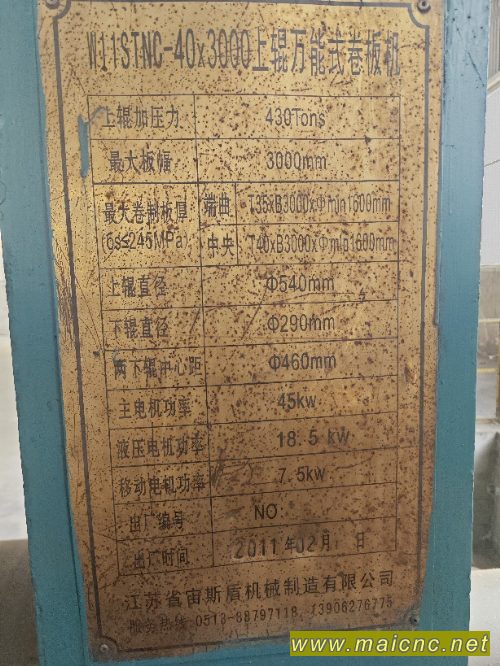 W11STNC-40x3000上辊万能式卷板机
上辊加压力 430Tons
最大板幅 3000mm
最大卷制板厚 端曲 T35xB3000xΦmin1600mm
(σs≤245MPa) 中央 T40xB3000xΦmin1600mm
上辊直径 Φ540mm
下辊直径 Φ290mm
两下辊中心距 Φ460mm
主电机功率 45kw
液压电机功率 18.5 kw
移动电机功率 7.5kw
出厂编号 NO
出厂时间 2011年02月 日
江苏省宙斯盾机械制造有限公司
服务热线:0513-88797118, 13906276775
www.maicnc.net